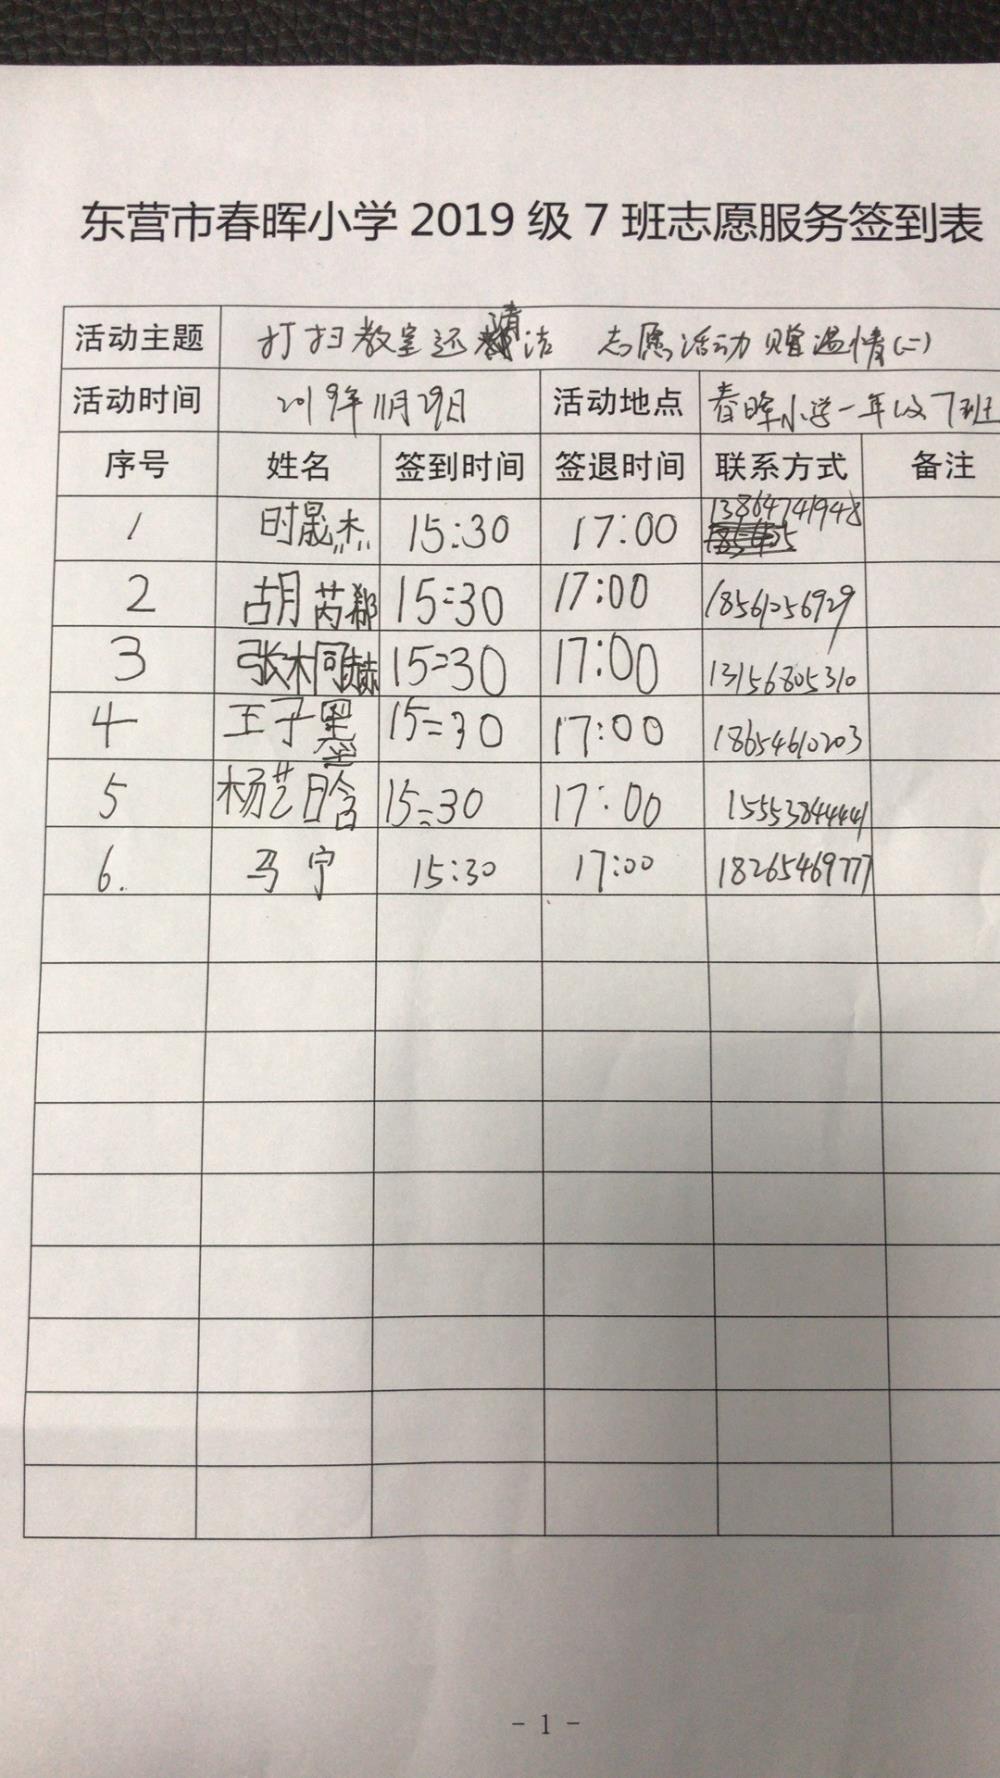 东营市春晖小学 2019 级 7 班志愿服务签到表
活动主题 打扫教室还清洁 志愿活动赠温情(二)
活动时间 2019年11月29日 活动地点 春晖小学一年级7班
序号 姓名 签到时间 签退时间 联系方式 备注
1 时晟杰 15:30 17:00 13864741948
2 胡芮郗 15:30 17:00 18561256929
3 张桐赫 15:30 17:00 13156805310
4 王子墨 15:30 17:00 18654610203
5 杨艺晗 15:30 17:00 15553844441
6. 马宁 15:30 17:00 18265469777
- 1 -